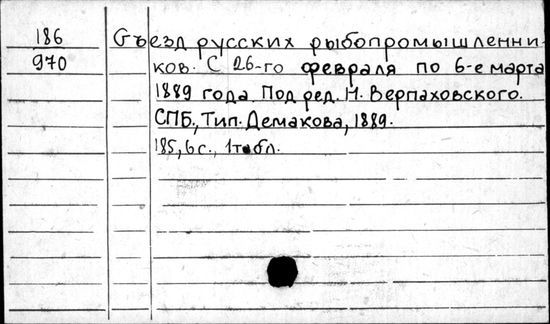 186
970
Съезд русских рыбопромышленни-
ков. С 26-го февраля по 6-е марта
1889 года. Под ред. Н. Верпаховского.
СПБ, Тип. Демакова, 1889.
185, 6 с., 1 табл.